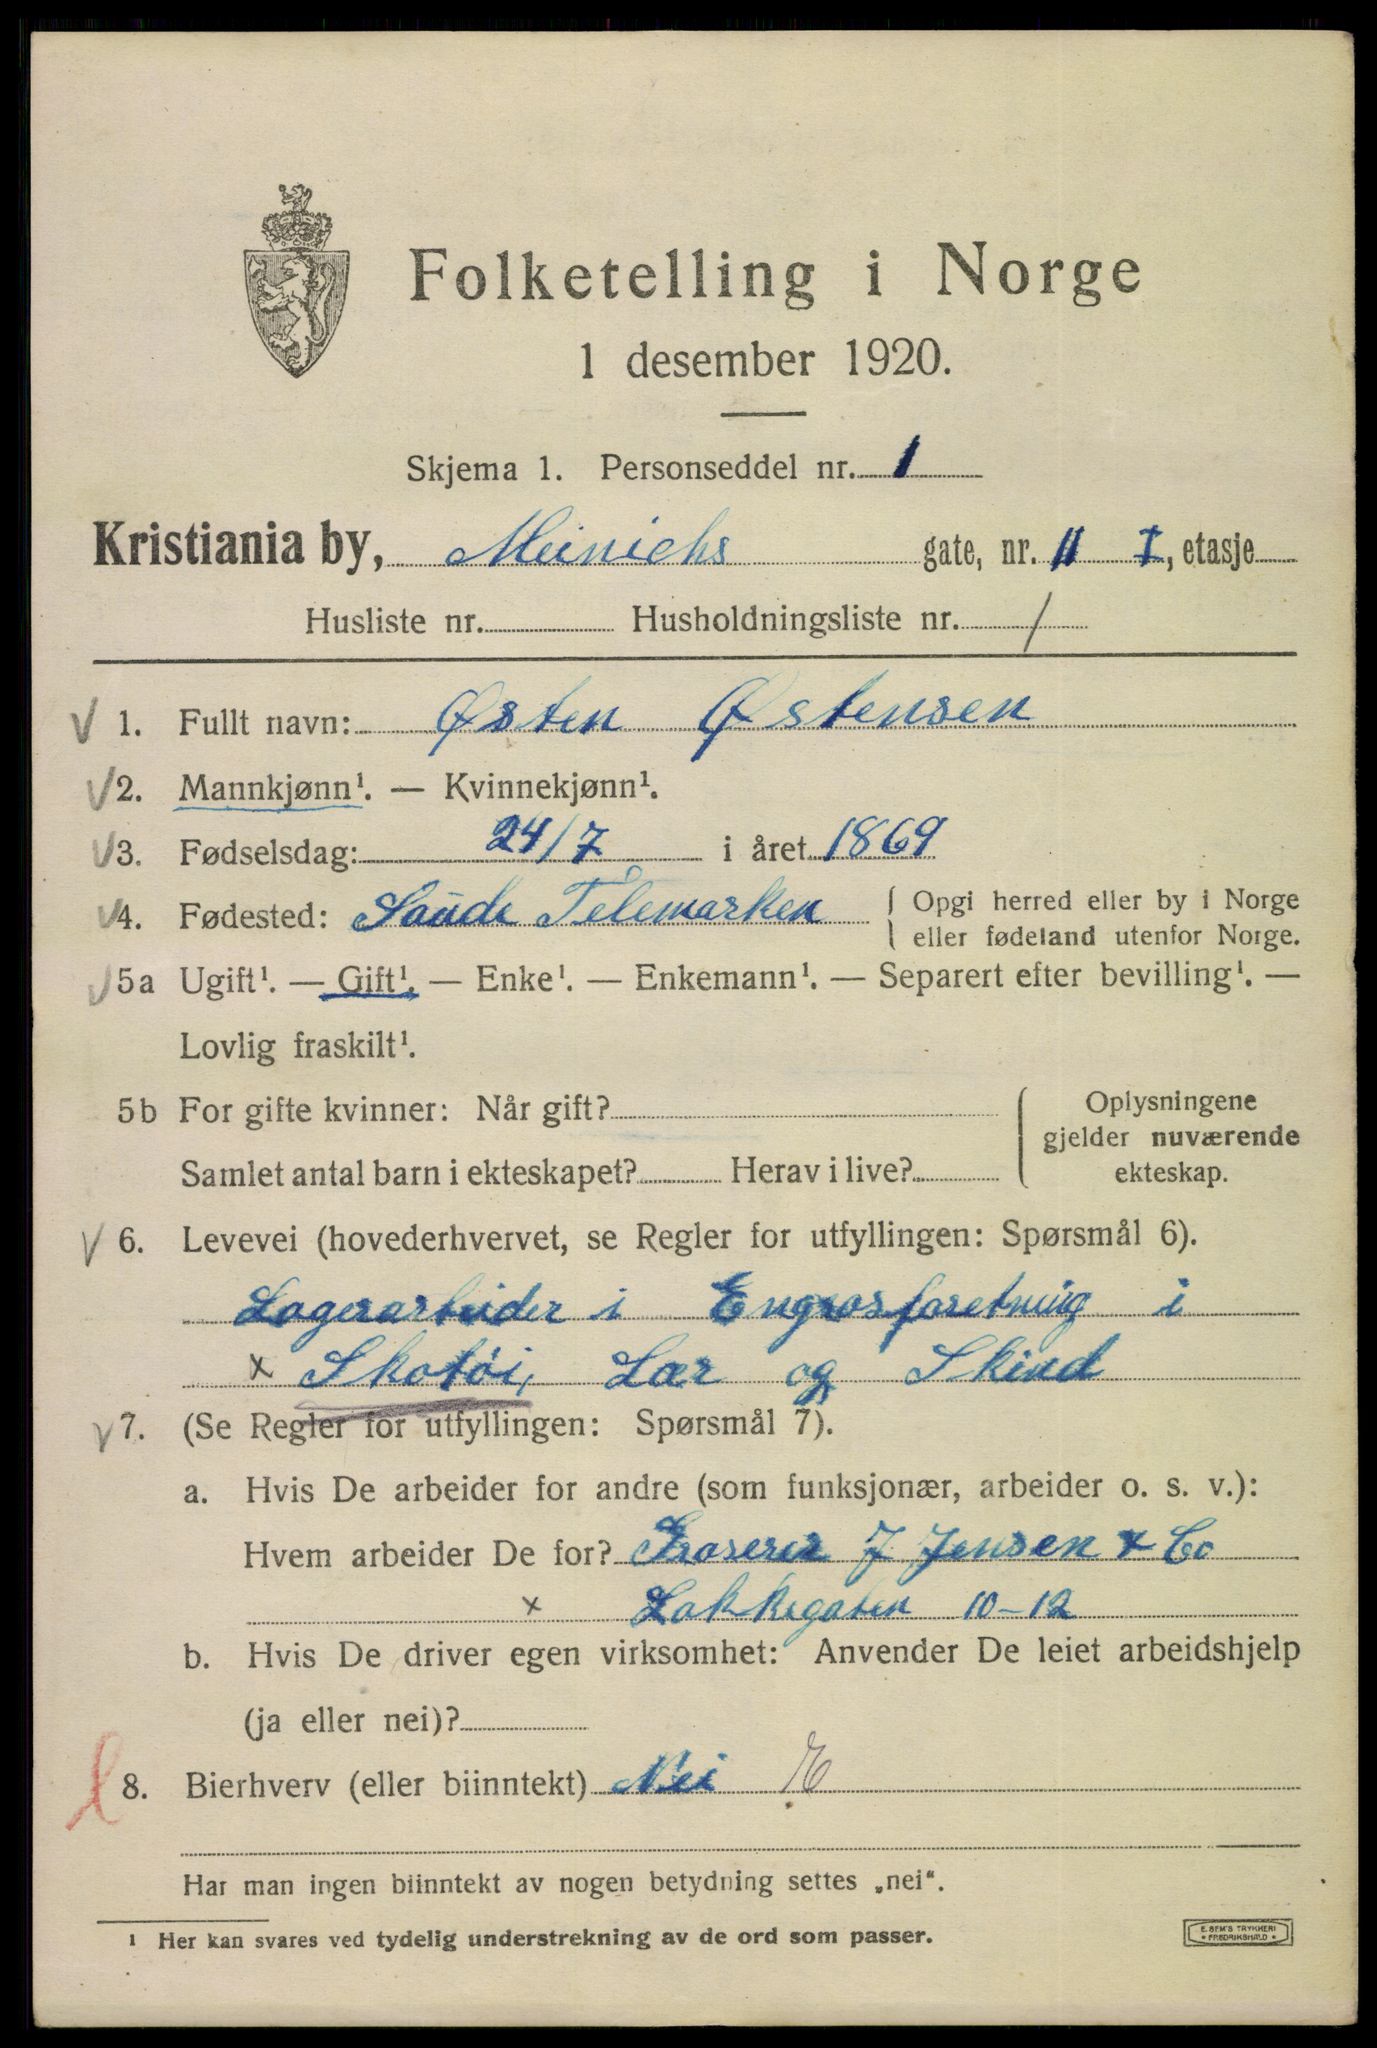 Folketelling i Norge
1 desember 1920.
Skjema 1. Personseddel nr. 1
Kristiania by, Meinichs gate, nr. 11 I, etasje
Husliste nr. Husholdningsliste nr. 1
1. Fullt navn: Østen Østensen
2. Mannkjønn¹. — Kvinnekjønn¹.
3. Fødselsdag: 24/7 i året 1869
4. Fødested: Saude Telemarken { Opgi herred eller by i Norge
eller fødeland utenfor Norge.
5a Ugift¹. — Gift¹. — Enke¹. — Enkemann¹. — Separert efter bevilling¹. —
Lovlig fraskilt¹.
5b For gifte kvinner: Når gift? Oplysningene
gjelder nuværende
Samlet antal barn i ekteskapet? Herav i live? ekteskap.
6. Levevei (hovederhvervet, se Regler for utfyllingen: Spørsmål 6).
Lagerarbeider i Engrosforetning i
x Skotöi, Lær og Skind
7. (Se Regler for utfyllingen: Spørsmål 7).
a. Hvis De arbeider for andre (som funksjonær, arbeider o. s. v.):
Hvem arbeider De for? Groserer J Jensen & Co
x Lakkegaten 10-12
b. Hvis De driver egen virksomhet: Anvender De leiet arbeidshjelp
(ja eller nei)?
8. Bierhverv (eller biinntekt) Nei
Har man ingen biinntekt av nogen betydning settes „nei“.
¹ Her kan svares ved tydelig understrekning av de ord som passer.
E. SEM'S TRYKKERI
* FREDRIKSHALD *